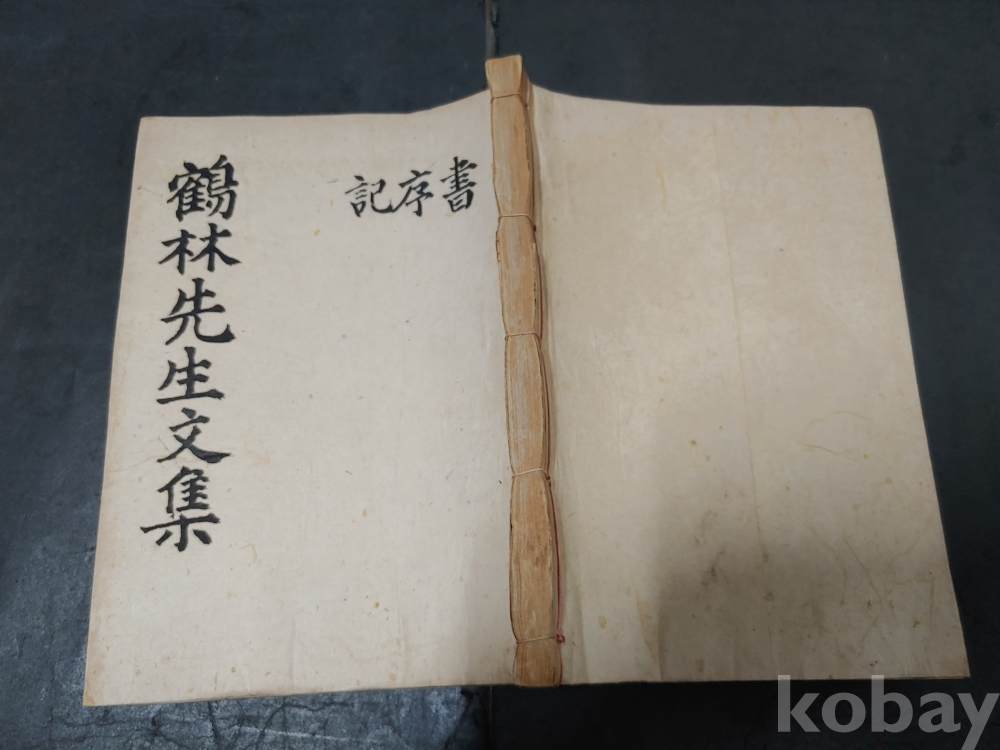 鶴林先生文集
書
序
記
kobay